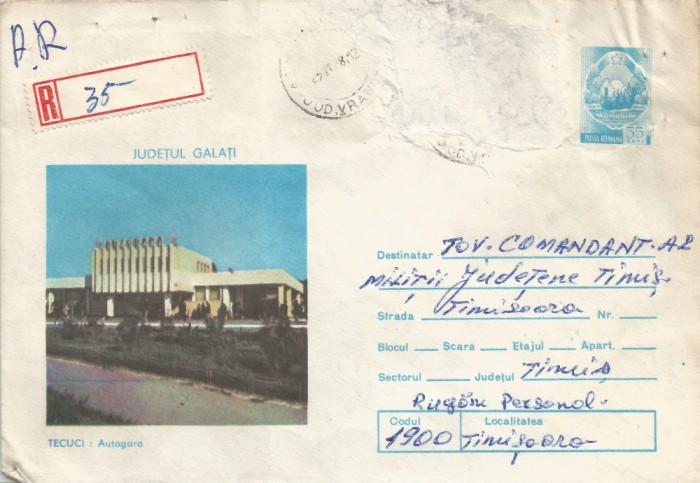 A.R
R 35
JUD. VRA
POSTA ROMANA 55
JUDEȚUL GALAȚI
AUTOGARA
TECUCI : Autogara
Destinatar TOV. COMANDANT. AL
Miliției Județene Timiș
Strada Timișoara Nr.
Blocul Scara Etajul Apart.
Sectorul Județul Timiș
Rugăm Personal.
Codul Localitatea
1900 Timișoara